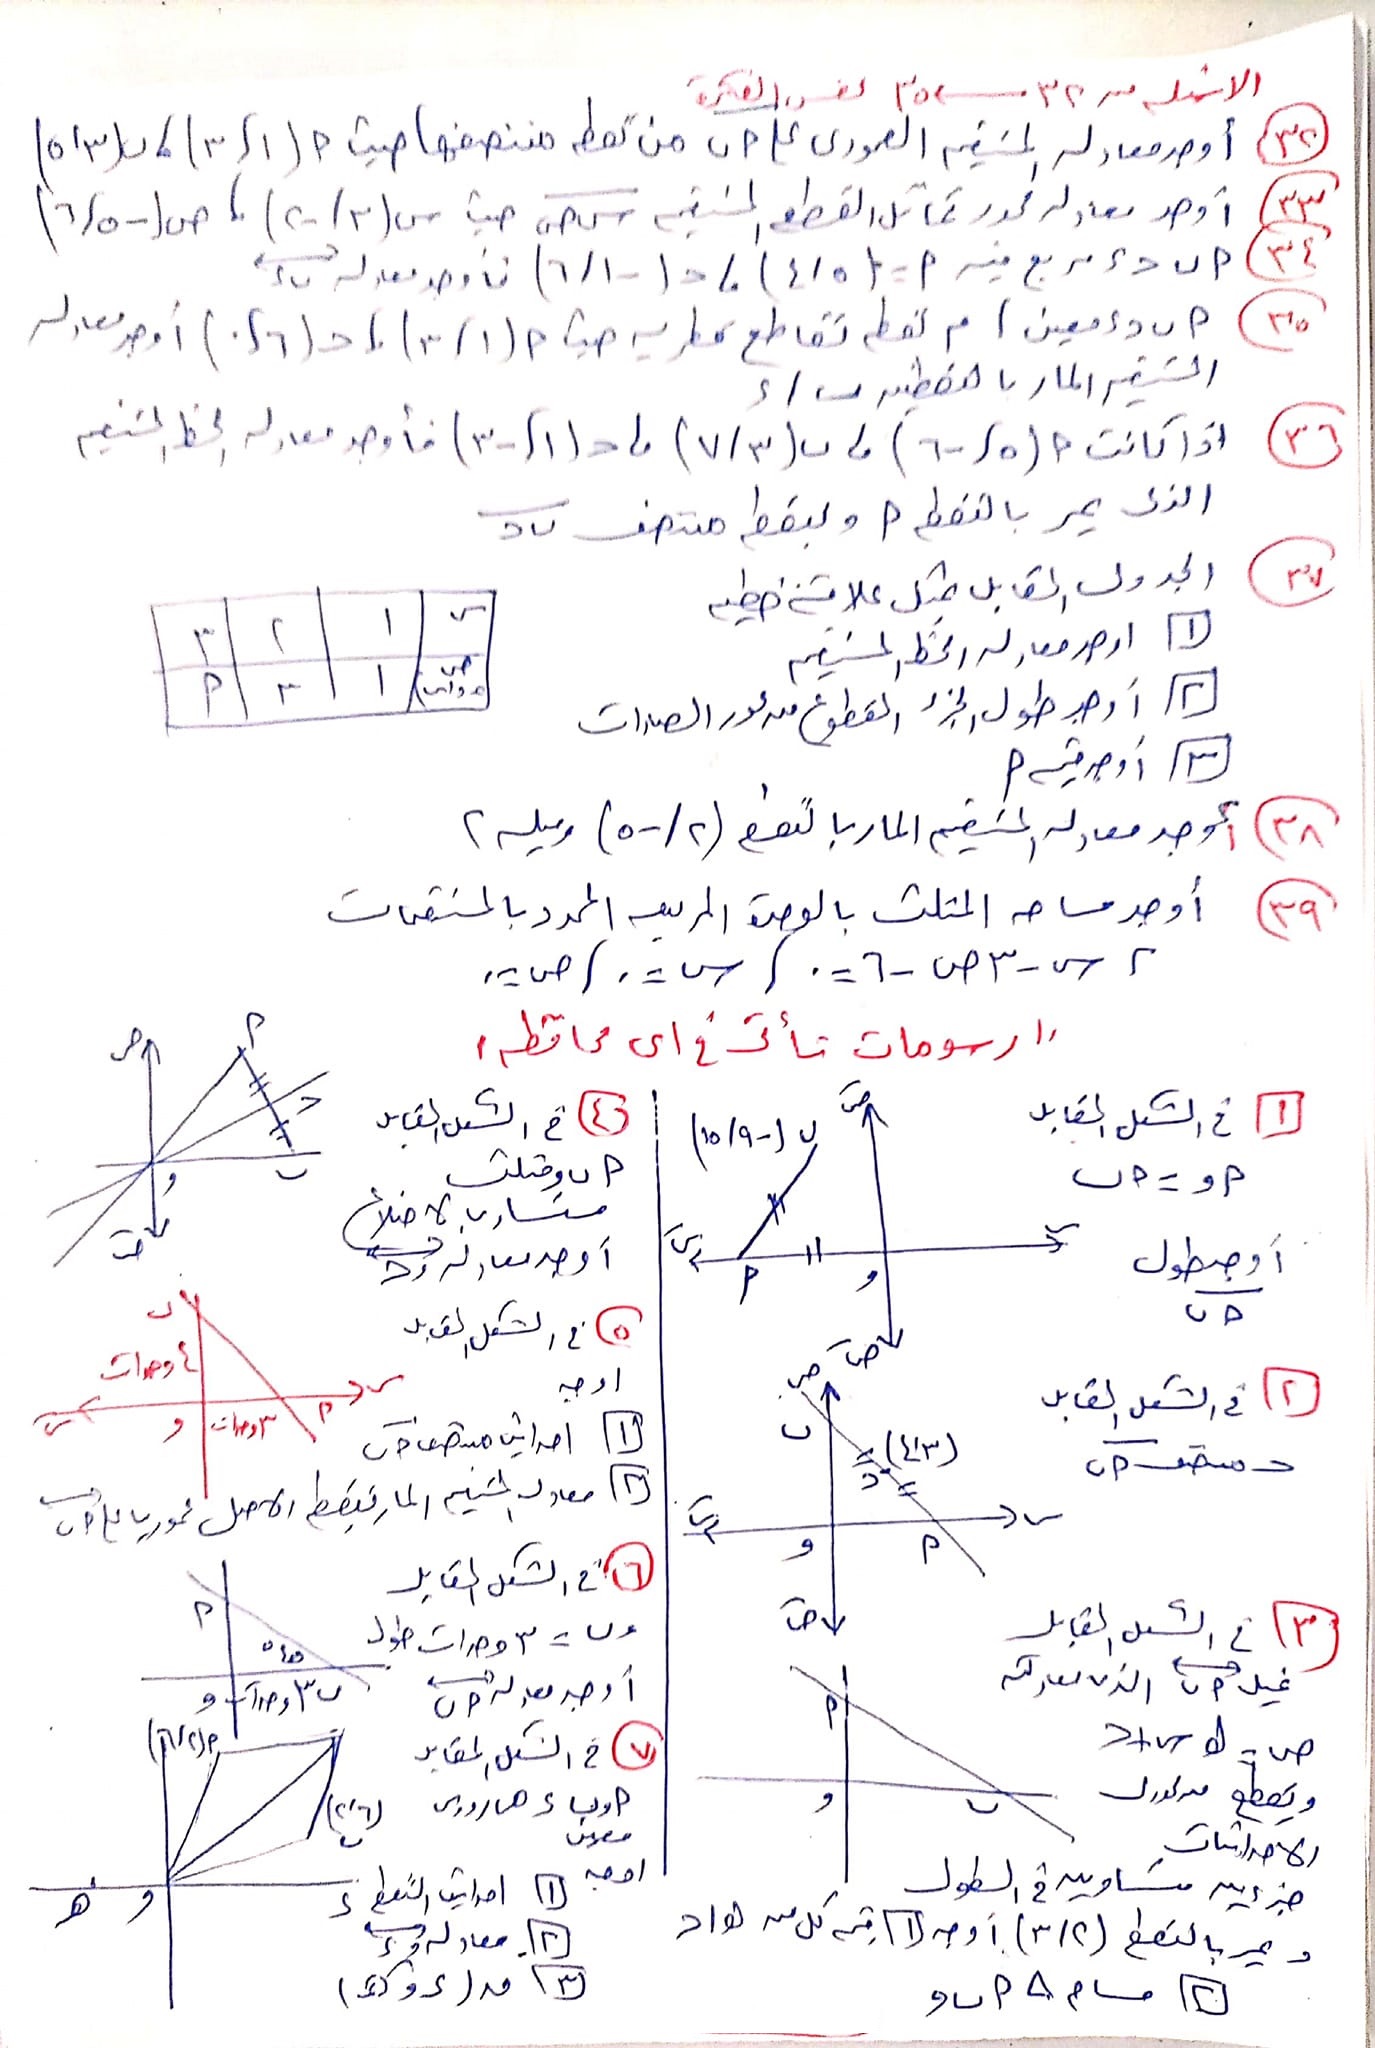 الاسئلة من ٣٢ ← ٣٥ نفس الفكرة
٣٢ أوجد معادلة المستقيم العمودى على أب من نقطة منتصفها حيث أ (١، ٣) ، ب (٣، ٥)
٣٣ أوجد معادلة محور تماثل القطعة المستقيمة س ص حيث س (٣، -٢) ، ص (-٥، ٦)
٣٤ أ ب ح ء مربع فيه أ = (٥، ٤) ، ح = (-١، ٦) فأوجد معادلة ب ء
٣٥ أ ب ح ء معين ، م نقطة تقاطع قطريه حيث أ (١، ٣) ، ح (٦، ٠) أوجد معادلة
المستقيم المار بالنقطتين ب ، ء
٣٦ اذا كانت أ (٥، -٦) ، ب (٣، ٧) ، ح (١، -٣) فأوجد معادلة الخط المستقيم
الذى يمر بالنقطة أ وبنقطة منتصف ب ح
٣٧ الجدول المقابل يمثل علاقة خطية
س ١ ٢ ٣
ص = د(س) ١ ٣ أ
١ اوجد معادلة الخط المستقيم
٢ أوجد طول الجزء المقطوع من محور الصادات
٣ أوجد قيمة أ
٣٨ أوجد معادلة المستقيم المار بالنقطة (٢، -٥) وميله ٢
٣٩ أوجد مساحة المثلث بالوحدة المربعة المحدد بالمستقيمات
٢ س - ٣ ص - ٦ = ٠ ، س = ٠ ، ص = ٠
"رسومات تأتى فى اى محافظة"
١ فى الشكل المقابل
أ و = أ ب
أوجد طول
أ ب
ب (-٩، ١٥)
أ
و
سَ
س
ص
صَ
٢ فى الشكل المقابل
ح منتصف أ ب
(٤،٣)
ص
ب
ح
سَ
و
أ
س
صَ
٣ فى الشكل المقابل
يمثل أ ب الذى معادلته
ص = ك س + ح
ويقطع من محورى
الاحداثيات
جزءين متساويين فى الطول
ويمر بالنقطة (٢، ٣) أوجد ١ قيمة كل من ك ، ح
٢ مساحة △ أ ب و
أ
و
ب
٤ فى الشكل المقابل
أ ب و مثلث
متساوى الاضلاع
أوجد معادلة و ح
ص
أ
ح
و
ب
صَ
٥ فى الشكل المقابل
اوجد
١ احداثى منتصف أ ب
٢ معادلة المستقيم المار بنقطة الاصل عموديا على أ ب
ب
٤ وحدات
سَ
و
٣ وحدات
أ
س
٦ فى الشكل المقابل
و ب = ٣ وحدات طول
أوجد معادلة أ ب
أ
٤٥°
و
٣ وحدات
ب
٧ فى الشكل المقابل
أ و ب ء
معين
اوجد
١ احداثى النقطة ء
٢ معادلة و ء
أ (٢، ٦)
(٢،٦)
ب
و
هـ